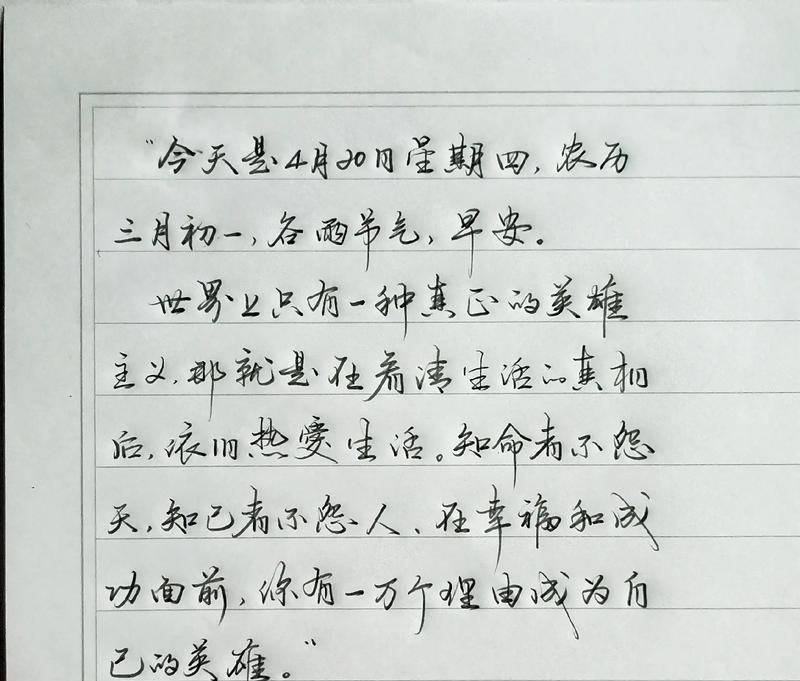 “今天是4月20日星期四,农历
三月初一,谷雨节气,早安。
世界上只有一种真正的英雄
主义,那就是在看清生活的真相
后,依旧热爱生活。知命者不怨
天,知己者不怨人、在幸福和成
功面前,你有一万个理由成为自
己的英雄。”